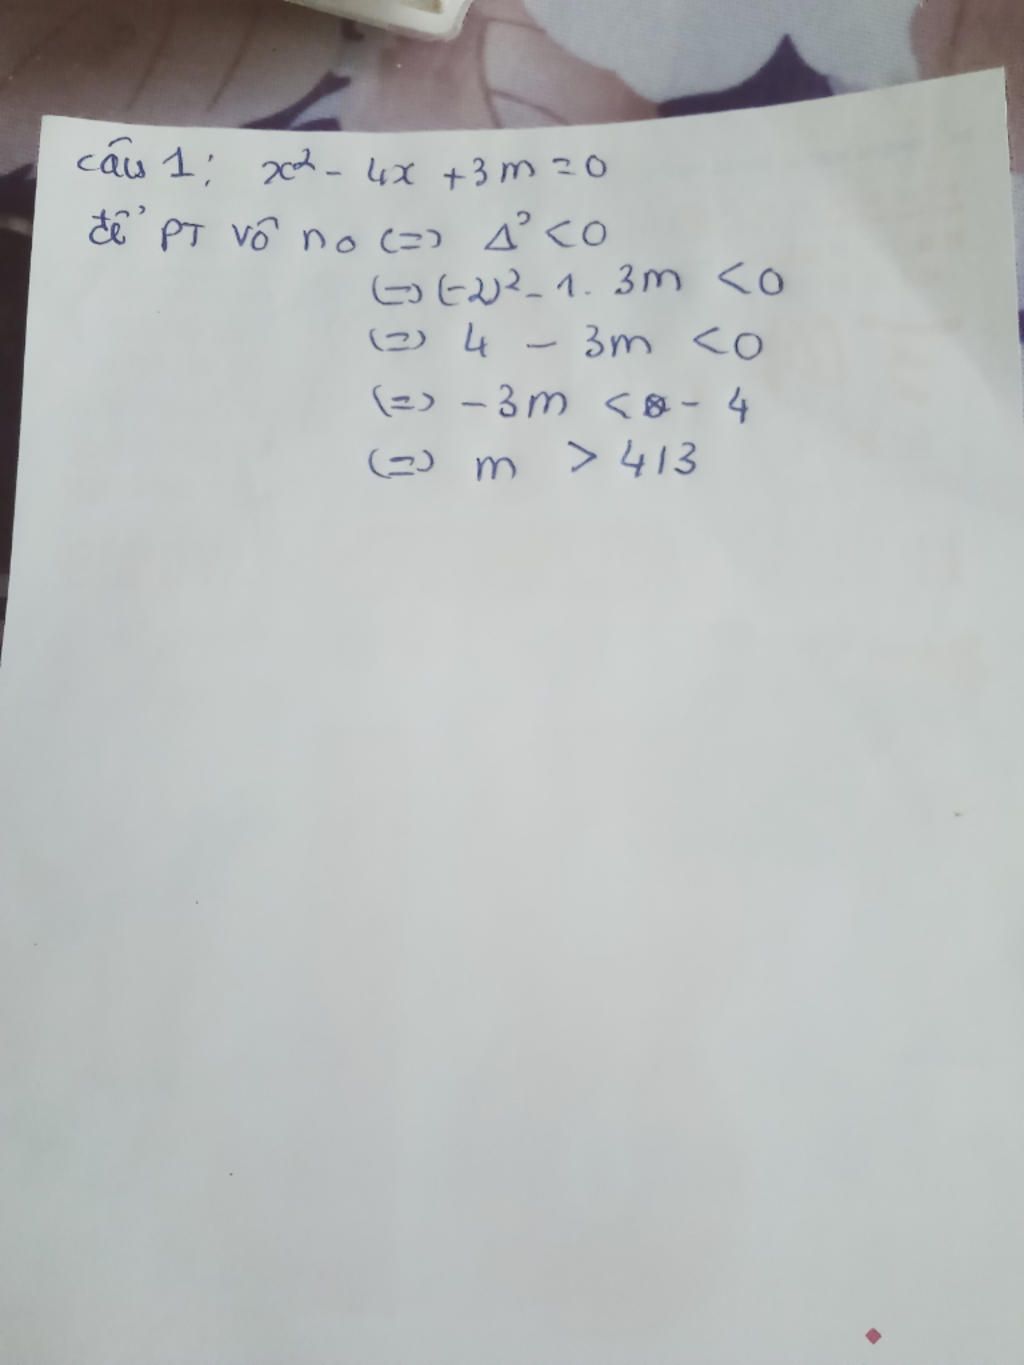 câu 1: x² - 4x + 3m = 0
để PT vô no (=) Δ' < 0
(=) (-2)² - 1. 3m < 0
(=) 4 - 3m < 0
(=) - 3m < - 4
(=) m > 4/3